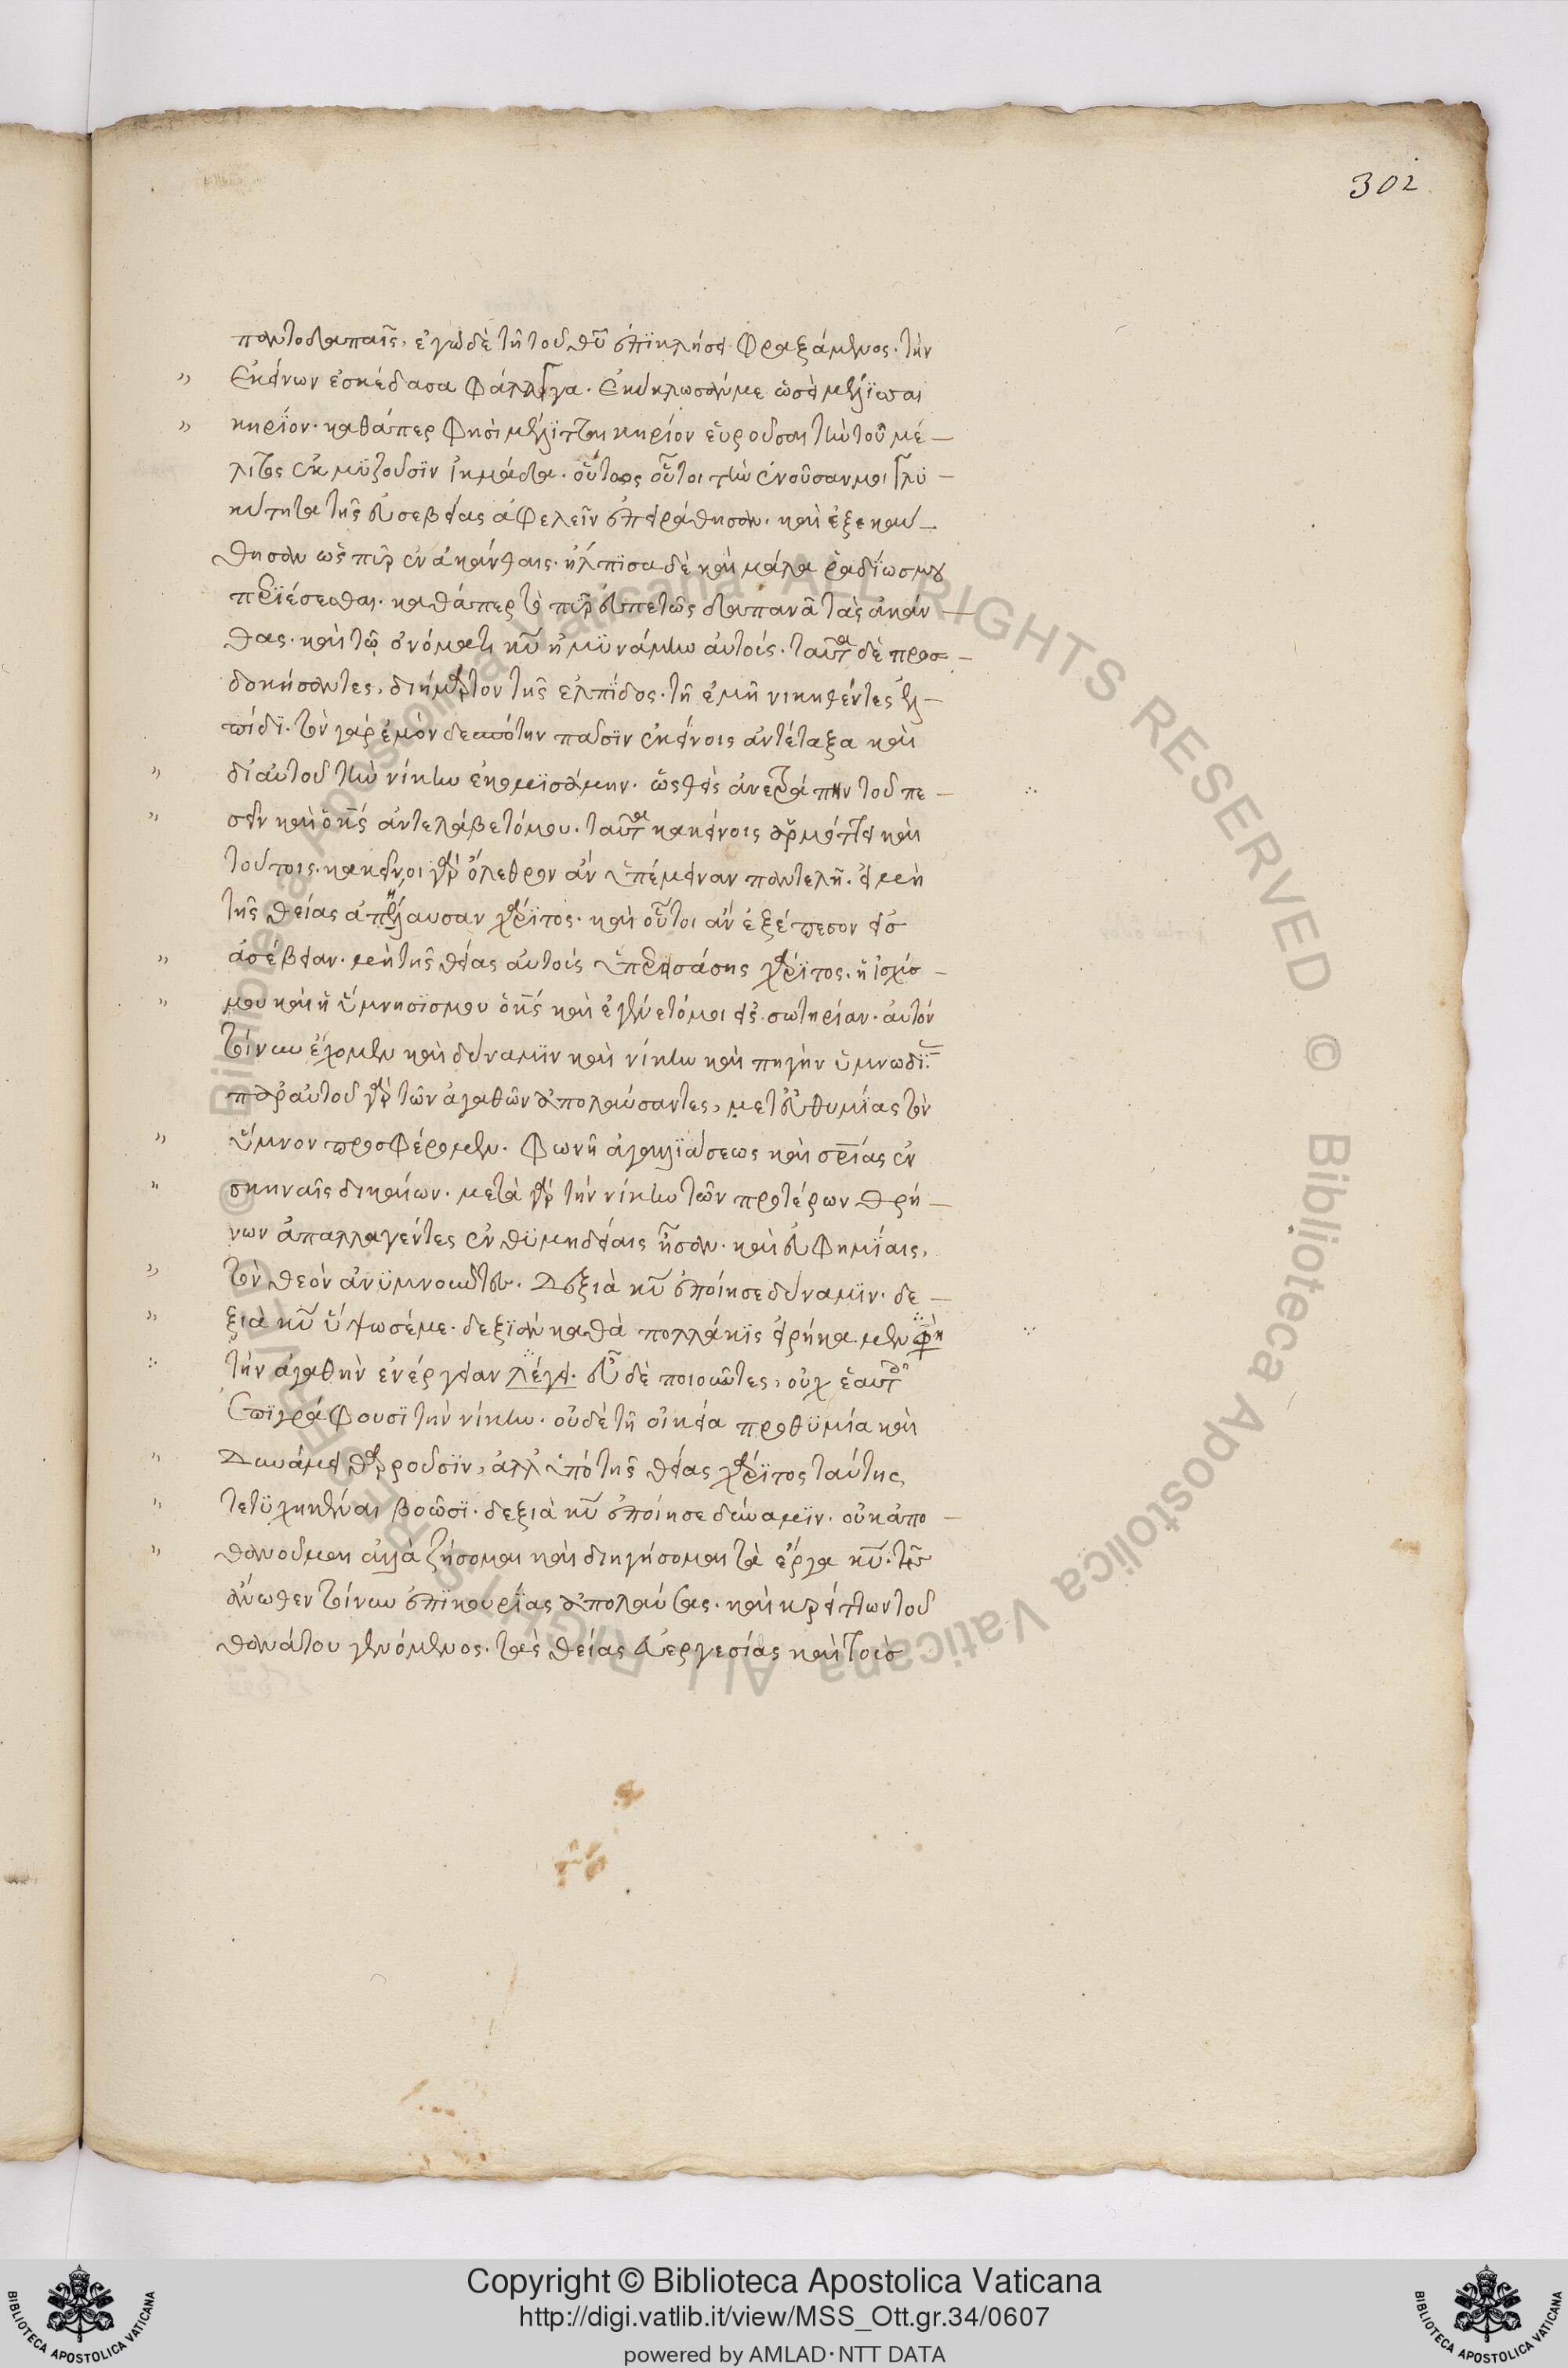 302
παντοδαπαῖς, ἐγὼ δὲ τῆ τοῦ θῦ ἐπϊκλήσει φραξάμενος. τὴν
ἐκείνων ἐσκέδασα φάλαγγα. ἐκύκλωσάν με ὡσεὶ μέλϊσσαι
κηρΐον. καθάπερ φησὶ μέλϊτται κηρίον εὑροῦσαι τὴν τοῦ μέ–
λιτος ἐκμϋζοῦσϊν ἰκμάδα. οὕτως οὗτοι τὴν ἐνοῦσαν μοι γλϋ–
κύτητα τῆς εὐσεβείας ἀφελεῖν ἐπειράθησαν. καὶ ἐξεκαύ–
θησαν ὡς πῦρ ἐν ἀκάνθαις. ἤλπϊσα δὲ καὶ μάλα ῥαδΐως μου
περϊέσεσθαι. καθάπερ τὸ πῦρ εὐπετῶς δαπανᾶ τὰς ἀκάν–
θας. καὶ τῷ ὀνόματι κῦ ἠμϋνάμην αὐτοίς. ταῦτα δὲ προσ–
δοκήσαντες, διήμαρτον τῆς ἐλπίδος. τῆ ἐμῆ νικηθέντες ἐλ–
πίδϊ. τὸν γὰρ ἐμὸν δεσπότην πᾶσϊν ἐκείνοις ἀντέταξα καὶ
δι αὐτοῦ τὴν νίκην ἐκομϊσάμην. ὠσθεὶς ἀνετράπην τοῦ πε–
σεῖν καὶ ὁ κς ἀντελάβετό μου. ταῦτα κακείνοις ἁρμόττει καὶ
τούτοις. κακεῖνοι γὰρ ὄλεθρον ἂν ὑπέμειναν παντελῆ. εἰ μὴ
τῆς θείας ἀπήλαυσαν χάρϊτος. καὶ οὗτοι ἂν ἐξέπεσον εἰς
ἀσέβειαν. μὴ τῆς θείας αὐτοίς ὑπερεισάσης χάρϊτος. ἡ ἰσχύς
μου καὶ ἡ ὕμνησΐς μου ὁ κς καὶ ἐγένετό μοι εἰς σωτηρίαν. αὐτὸν
τοίνυν ἔχομεν καὶ δύναμϊν καὶ νίκην καὶ πηγὴν ὑμνωδΐας.
παρ αὐτοῦ γὰρ τῶν ἀγαθῶν ἀπολαύσαντες, μετ εὐθυμίας τὸν
ὕμνον προσφέρομεν. φωνὴ ἀγαλλϊάσεως καὶ σρίας ἐν
σκηναῖς δικαίων. μετὰ γὰρ τὴν νίκην τῶν προτέρων θρή–
νων ἀπαλλαγέντες ἐν θϋμηδείαις ἦσαν. καὶ εὐφημΐαις,
τὸν θεὸν ἀνϋμνοῦντες. δεξιὰ κῦ ἐποίησε δύναμϊν. δε–
ξιὰ κῦ ὕψωσέ με. δεξϊὰν καθὰ πολλάκϊς εἰρήκαμεν
τὴν ἀγαθὴν ἐνέργειαν λέγει. εὖ δὲ ποιοῦντες, οὐχ ἑαυτοῖς
ἐπϊγράφουσϊ τὴν νίκην. οὐδὲ τῆ οἰκεία προθϋμία καὶ
δυνάμει θαρροῦσϊν, ἀλλ ὑπὸ τῆς θείας χάρϊτος ταύτης
τετϋχηκέναι βοῶσϊ. δεξιὰ κῦ ἐποίησε δύναμϊν. οὐκ ἀπο–
θανοῦμαι ἀλλὰ ζήσομαι καὶ διηγήσομαι τὰ ἔργα κῦ. τῆς
ἄνωθεν τοίνυν ἐπϊκουρΐας ἀπολαύσας. καὶ κρείττων τοῦ
θανάτου γενόμενος. τὰς θείας εὐεργεσίας καὶ τοὶς
Copyright © Biblioteca Apostolica Vaticana
http://digi.vatlib.it/view/MSS_Ott.gr.34/0607
powered by AMLAD·NTT DATA